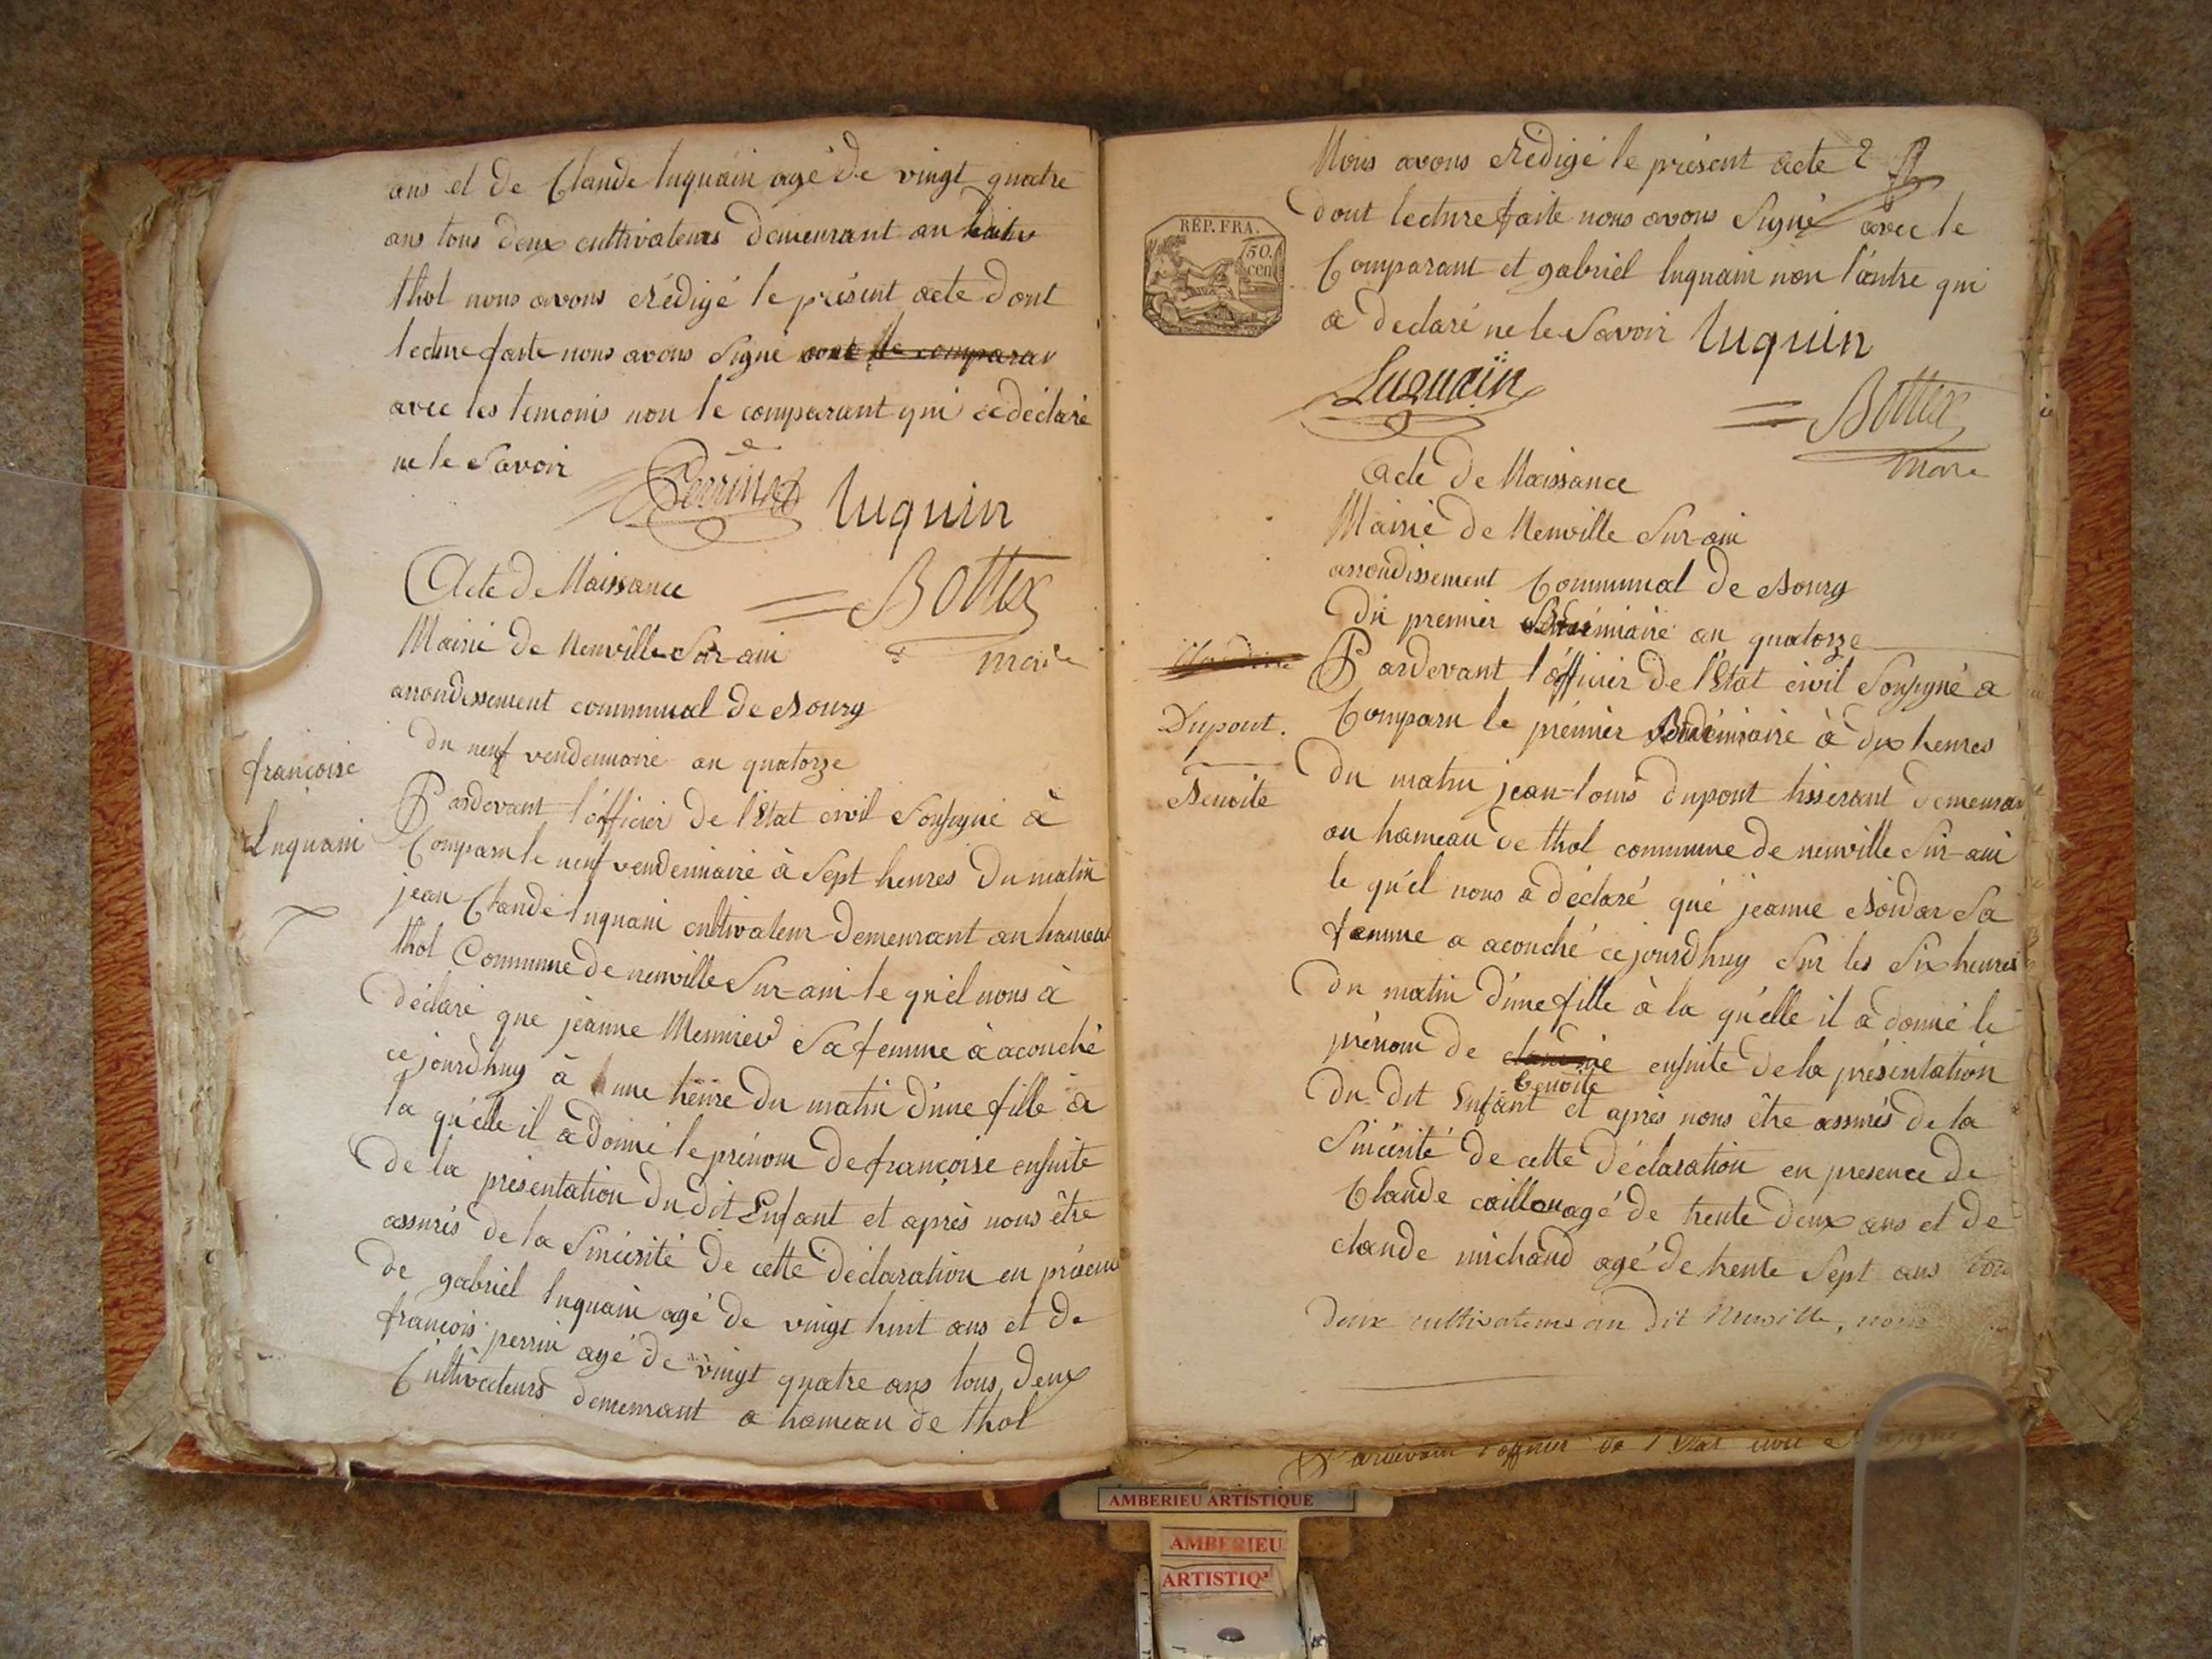 ans et de Claude luquain agé de vingt quatre
ans tous deux cultivateurs demeurant au
thol nous avons rédigé le présent acte dont
lecture faite nous avons signé avec le comparan
avec les temoins non le comparant qui a déclaré
ne le savoir
Perrin luquin
Bottex
maire
Acte de Naissance
Mairie de Neuville sur ain
arrondissement communal de Bourg
du neuf vendemiaire an quatorze
françoise
Luquain
Pardevant l'officier de l'Etat civil soussigné à
Comparu le neuf vendemiaire à sept heures du matin
jean Claude luquain cultivateur demeurant au hameau
thol Commune de neuville sur-ain le qu'el nous à
déclaré que jeanne Meunier sa femme à acouché
ce jourdhuy à une heure du matin d'une fille à
la qu'elle il à donné le prénom de françoise ensuite
de la présentation du dit Enfant et après nous être
assurés de la sincérité de cette déclaration en présence
de gabriel luquain agé de vingt huit ans et de
françois perrin agé de vingt quatre ans tous deux
Cultivateurs demeurant a hameau de thol
Nous avons rédigé le présent acte
dont lecture faite nous avons signé avec le
Comparant et gabriel luquain non l'autre qui
a declaré ne le savoir luquin
Luquain
Bottex
maire
REP. FRA.
50.
cen
Acte de Naissance
Mairie de Neuville sur-ain
arrondissement Communal de Bourg
du premier an quatorze
Dupont.
Benoite
Pardevant l'officier de l'Etat civil soussigné a
Comparu le premier à dix heures
du matin jean-louis dupont tisserant demeuran
au hameau de thol commune de neuville sur-ain
le qu'el nous a déclaré que jeanne sa
femme a acouché ce jourdhuy sur les six heures
du matin d'une fille à la qu'elle il a donné le
prénom de ensuite de la présentation
benoite
du dit Enfant et après nous être assurés de la
sincérité de cette déclaration en presence de
Claude agé de trente deux ans et de
claude michaud agé de trente sept ans tous
deux cultivateurs au dit Neuville, nous
Pardevant l'officier de l'Etat civil
AMBERIEU ARTISTIQUE
AMBERIEU
ARTISTIQ